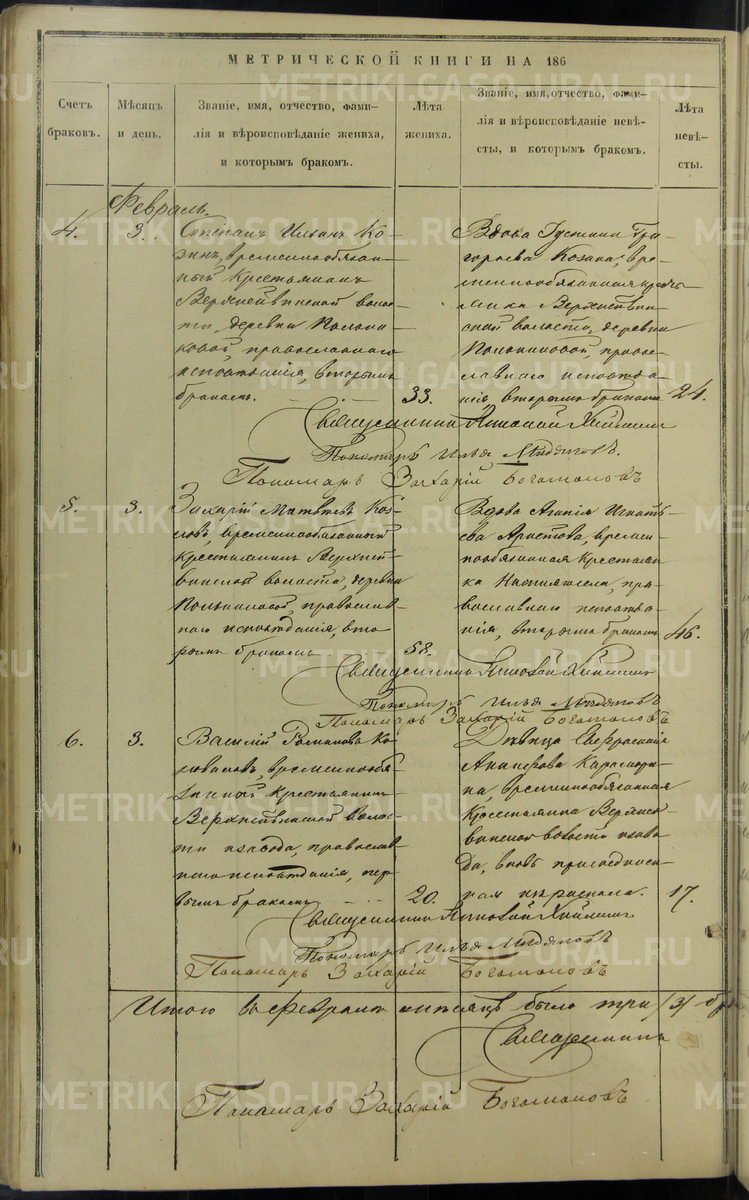 МЕТРИЧЕСКОЙ КНИГИ НА 186
Счетъ браковъ.
Мѣсяцъ и день.
Званіе, имя, отчество, фами-
лія и вѣроисповѣданіе жениха,
и которымъ бракомъ.
Лѣта жениха.
Званіе, имя, отчество, фами-
лія и вѣроисповѣданіе невѣ-
сты, и которымъ бракомъ.
Лѣта невѣ-
сты.
Февраль.
4.
3.
Степанъ Ильинъ Ко-
зинъ, временнообязан-
ный крестьянинъ
Верхнейвинской волос-
ти, деревни
православнаго
исповѣданія, вторымъ
бракомъ.
33.
Вдова Густинья Гри-
горьева Козина, вре-
меннообязанная кресть-
янка Верхнейвин-
ской волости, деревни
право-
славнаго исповѣда-
нія, вторымъ бракомъ
24.
Священникъ
Пономарь Илья
Пономарь Захарій Богомоловъ
5.
3.
Захарій Матвѣевъ Коз-
ловъ, временнообязанный
крестьянинъ Верхней-
винской волости, деревни
православ-
наго исповѣданія, вто-
рымъ бракомъ
58.
Вдова Агапія Игнатье-
ва Аристова, времен-
нообязанная крестьян-
ка
пра-
вославнаго исповѣда-
нія, вторымъ бракомъ
46.
Священникъ
Пономарь Илья
Пономарь Захарій Богомоловъ
6.
3.
Василій Романовъ Ко-
новаловъ, временнообя-
занный крестьянинъ
Верхнейвинской волос-
ти и завода, православ-
наго исповѣданія, пер-
вымъ бракомъ
20.
Дѣвица Евфросинія
временнообязанная
крестьянина Верхней-
винской волости и заво-
да, вновь присоедине-
ная изъ раскола.
17.
Священникъ
Пономарь Илья
Пономарь Захарій Богомоловъ
Итого въ Февралѣ мѣсяцѣ было три /3/
Священникъ
Пономарь Захарій Богомоловъ
METRIKI.GASO-URAL.RU